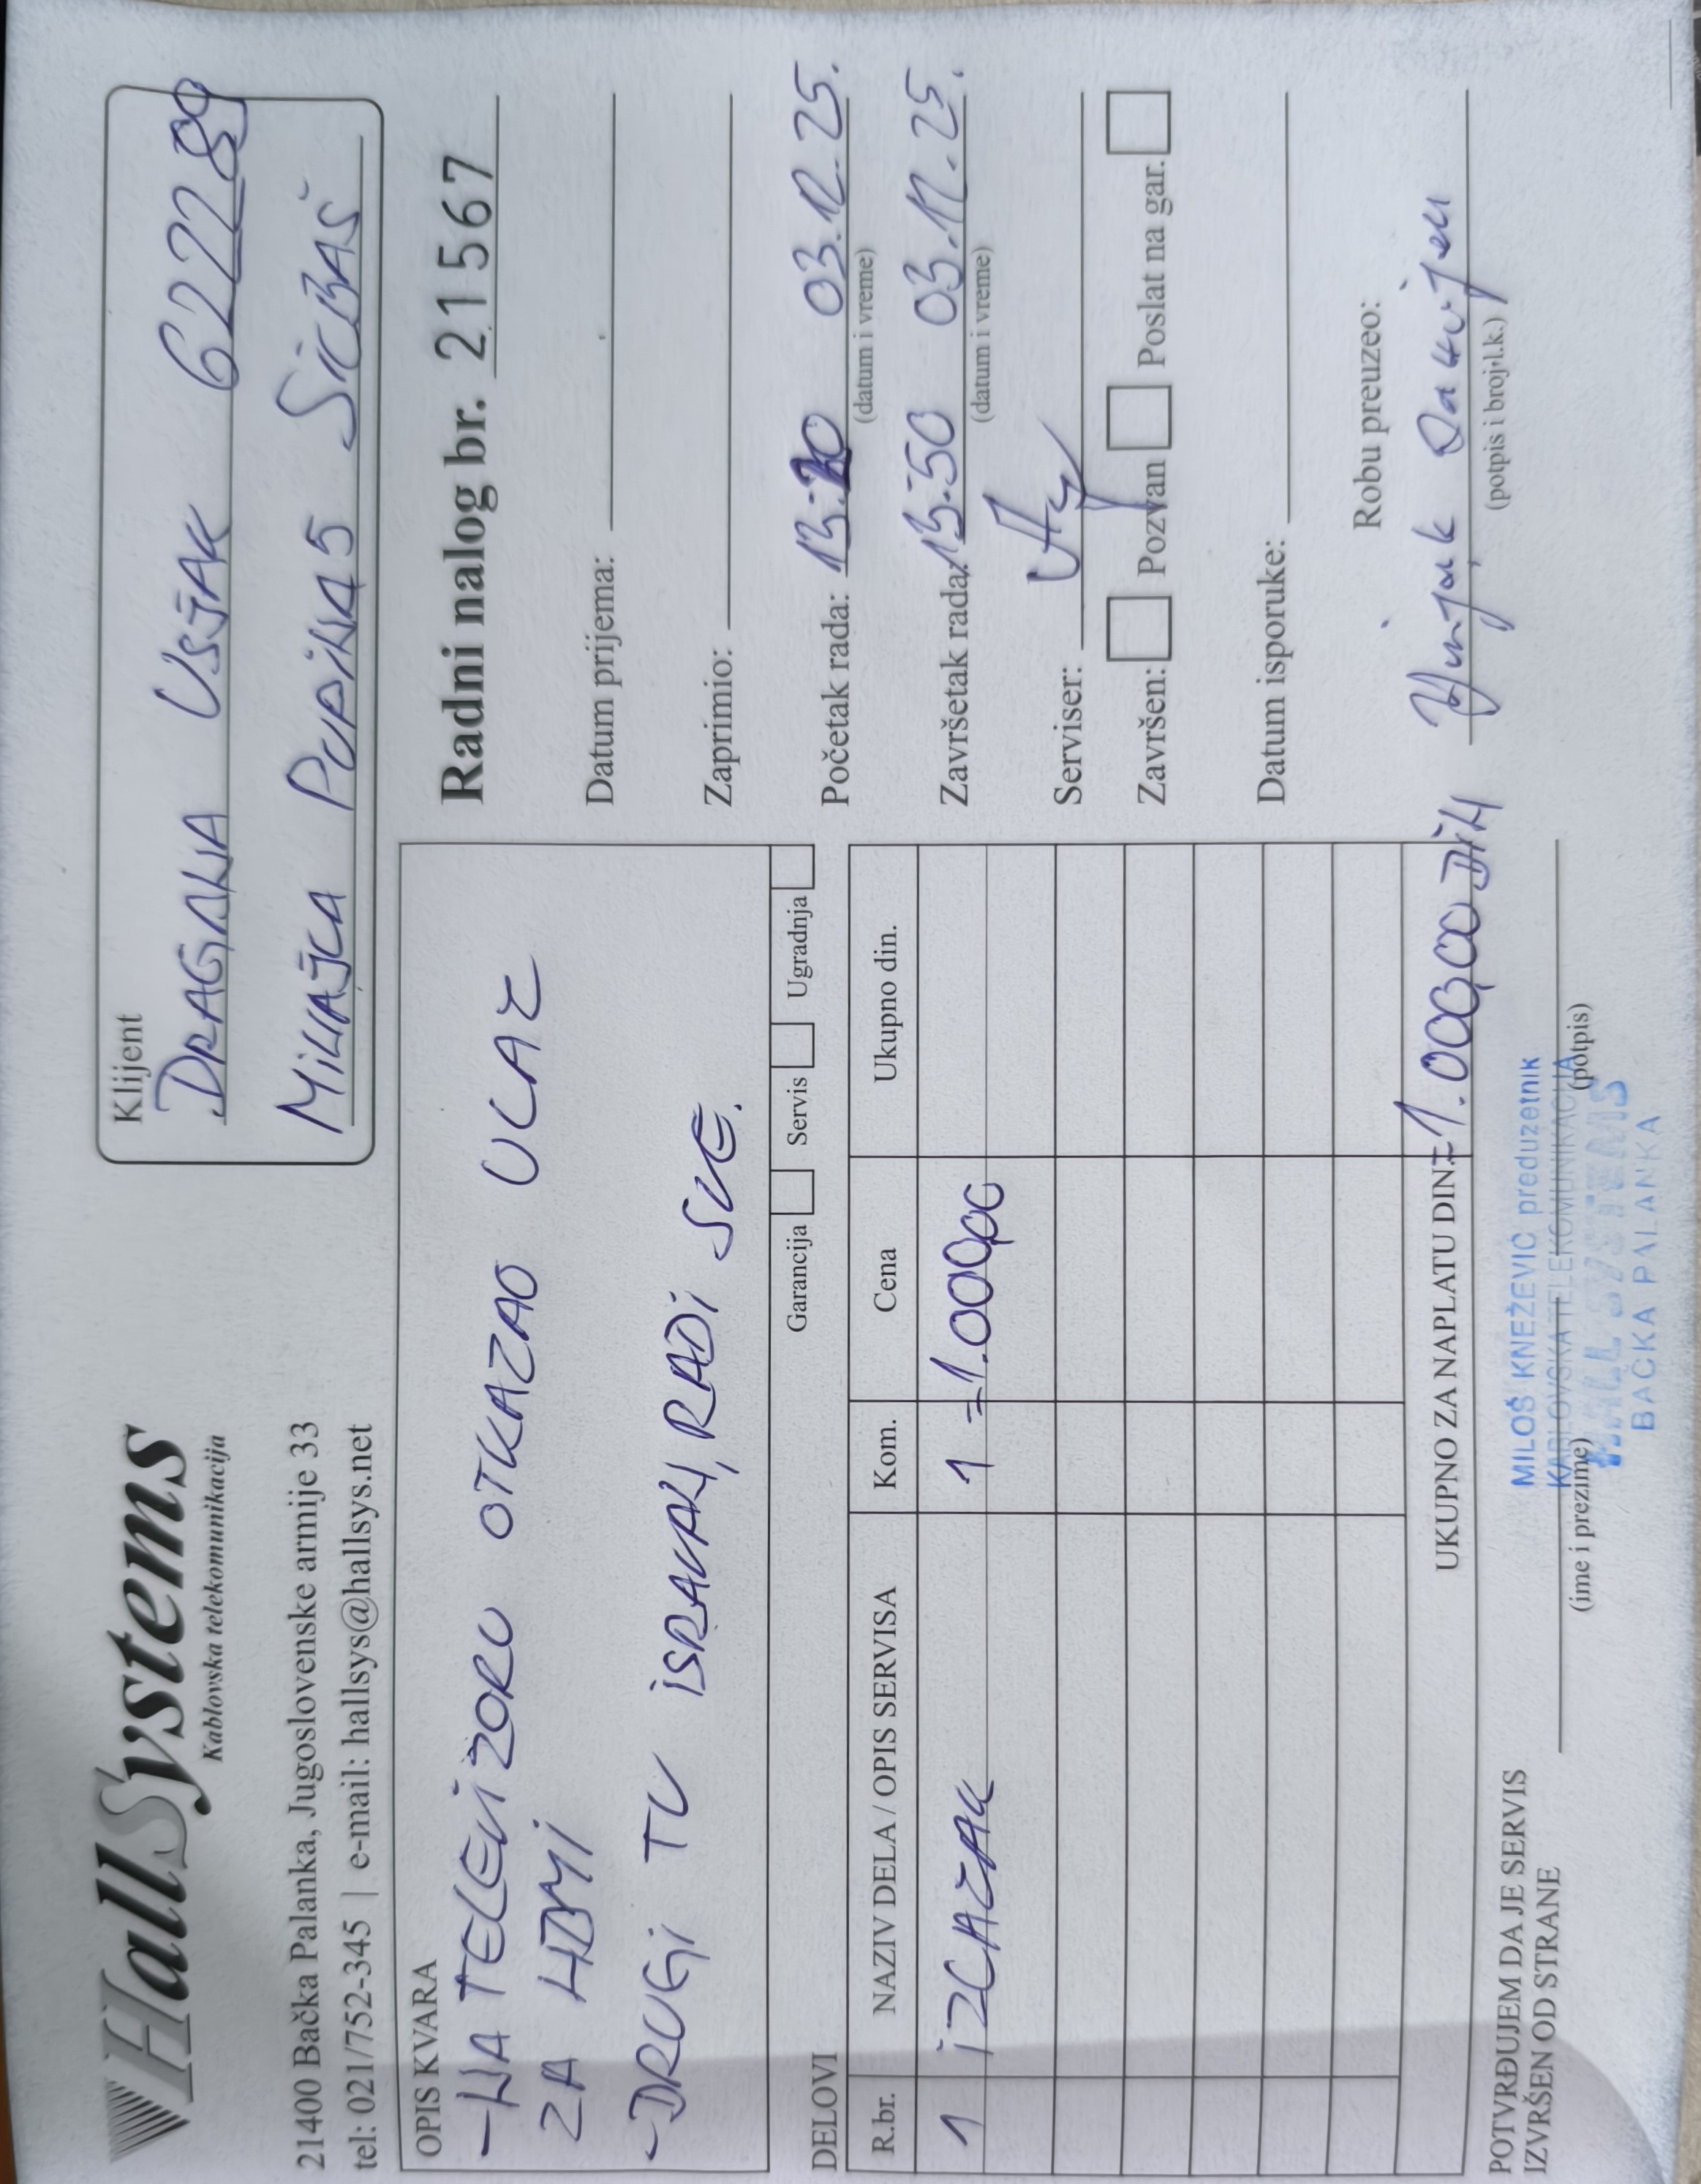 HallSystems
Kablovska telekomunikacija
21400 Bačka Palanka, Jugoslovenske armije 33
tel: 021/752-345 | e-mail: hallsys@hallsys.net
Klijent
DRAGANA UJJAK 62289
MIHAJLA PUPINA 5 SILBAŠ
OPIS KVARA
-NA TELEVIZORU OTKAZAO ULAZ
ZA HDMI
-DRUGI TV ISPRAVAN, RADI SVE.
Garancija Servis Ugradnja
Radni nalog br. 21567
Datum prijema:
Zaprimio:
Početak rada: 13:20 03.12.25.
(datum i vreme)
Završetak rada: 13:50 03.12.25.
(datum i vreme)
Serviser:
Završen: Pozvan Poslat na gar.
Datum isporuke:
Robu preuzeo:
(potpis i broj l.k.)
DELOVI
R.br. NAZIV DELA / OPIS SERVISA Kom. Cena Ukupno din.
1 IZLAZAK 1 =1.000,00
UKUPNO ZA NAPLATU DIN. =1.000,00 DIN
POTVRĐUJEM DA JE SERVIS
IZVRŠEN OD STRANE
(ime i prezime) (potpis)
MILOŠ KNEŽEVIĆ preduzetnik
KABLOVSKA TELEKOMUNIKACIJA
HALL SYSTEMS
BAČKA PALANKA